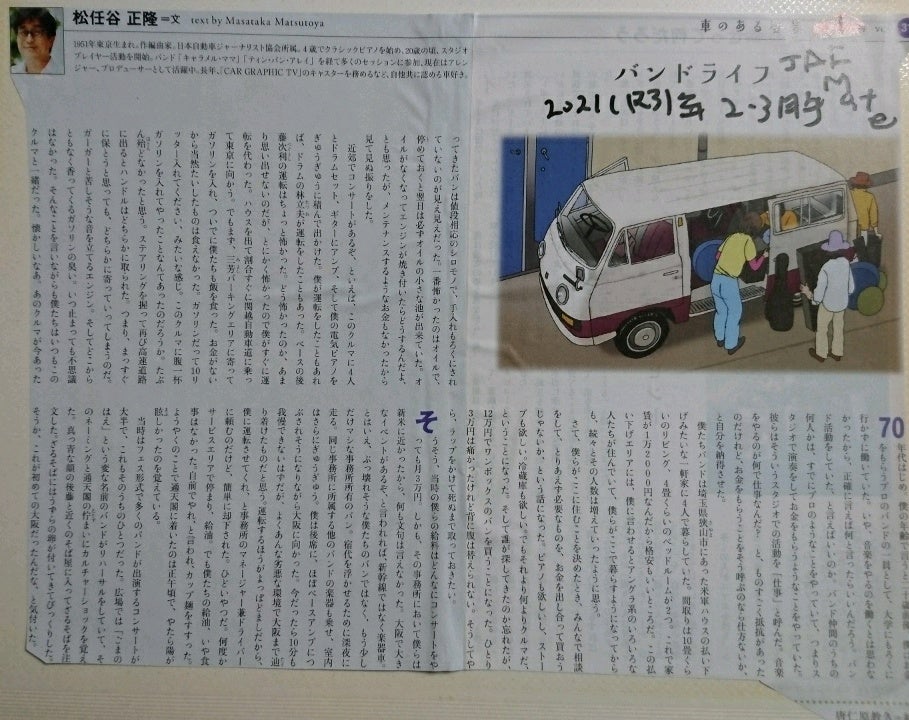 松任谷 正隆＝文 text by Masataka Matsutoya
車のある
1951年東京生まれ。作編曲家。日本自動車ジャーナリスト協会所属。4歳でクラシックピアノを始め、20歳の頃、スタジオ
プレイヤー活動を開始。バンド「キャラメル・ママ」「ティン・パン・アレイ」を経て多くのセッションに参加。現在はアレン
ジャー、プロデューサーとして活躍中。長年、「CAR GRAPHIC TV」のキャスターを務めるなど、自他共に認める車好き。
バンドライフ
JAF Mate
2021(R3)年 2・3月号
70年代はじめ、僕の年齢
行かずに働いていた。いや、音楽をやるを働くとは思わな
かったから、正確に言えば何と言ったらいいんだろう。バン
ド活動をしていた、と言えばいいのか。バンド仲間のうちの
何人かは、すでにプロのようなことをやっていて、つまりス
タジオで演奏をしてお金をもらうようなことをやっていた。
彼らはそういうスタジオでの活動を「仕事」と呼んだ。音楽
をやるのが何で仕事なんだろ、と、ものすごく抵抗があった
のだけれど、お金をもらうことをそう呼ぶのなら仕方ないか、
と自分を納得させた。
僕たちバンドは埼玉県狭山市にあった米軍ハウスの払い下
げみたいな一軒家に4人で暮らしていた。間取りは10畳くら
いのリビング、4畳くらいのベッドルームが2つ。これで家
賃が1万2000円なんだから格安もいいところだ。この払
い下げエリアには、僕に言わせるとアングラ系のいろいろな
人たちが住んでいて、僕らがここで暮らすようになってから
も、続々とその人数は増えていったように思う。
さて、僕らがここに住むことを決めたとき、みんなで相談
をして、とりあえず必要なものを、お金を出し合って買おう
じゃないか、という話になった。ピアノも欲しいし、ストー
ブも欲しい。冷蔵庫も欲しい。でもそれより何よりクルマだ、
ということになった。そして誰が探してきたのか忘れたが、
12万円でワンボックスのバンを買うことになった。ひとり
3万円は痛かったけれど背に腹は替えられない。そうしてや
ってきたバンは値段相応のシロモノで、手入れもろくにされ
ていないのが見え見えだった。一番怖かったのはオイルで、
停めておくと翌日は必ずオイルの小さな池が出来ていた。オ
イルがなくなってエンジンが焼き付いたらどうするんだよ、
とも思ったが、メンテナンスするようなお金もなかったから
見て見ぬ振りをした。
近郊でコンサートがあるぞ、といえば、このクルマに4人
とドラムセット、ギターにアンプ、そして僕の電気ピアノを
ぎゅうぎゅうに積んで出かけた。僕が運転をしたこともあれ
ば、ドラムの林立夫が運転をしたこともあった。ベースの後
藤次利の運転はちょっと怖かった。どう怖かったのか、あま
り思い出せないのだが、とにかく怖かったので僕がすぐに運
転を代わった。ハウスを出て割合すぐに関越自動車道に乗っ
て東京に向かう。でもまず、三芳パーキングエリアに寄って
ガソリンを入れ、ついでに僕たちも飯を食った。お金がない
から当然たいしたものは食えなかった。ガソリンだって10リ
ッター入れてください、みたいな感じ。このクルマに腹一杯
ガソリンを入れてやったことなんてあったのだろうか。たぶ
ん殆どなかったと思う。ステアリングを握って再び高速道路
に出るとハンドルはどちらかに取られた。つまり、まっすぐ
に保とうと思っても、どちらかに寄っていってしまうのだ。
ガーガーと苦しそうな音を立てるエンジン。そしてどこから
ともなく香ってくるガソリンの臭い。いつ止まっても不思議
はなかった。そんなことを言いながらも僕たちはいつもこの
クルマと一緒だった。懐かしいなあ。あのクルマが今あった
ら、ラップをかけて死ぬまで取っておきたい。
そうそう、当時の僕らの給料はどんなにコンサートをや
っても月3万円。しかも、その事務所において僕らは
新米に近かったから、何も文句は言えなかった。大阪で大き
なイベントがあるぞ、と言われれば、新幹線ではなく楽器車。
とはいえ、ぶっ壊れそうな僕たちのバンではなく、もう少し
だけマシな事務所所有のバン。宿代を浮かせるために深夜に
走る。同じ事務所に所属する他のバンドの楽器も乗せ、室内
はさらにぎゅうぎゅうだ。僕らは後席に、ほぼベースアンプにつ
ぶされそうになりながら大阪に向かった。今だったら10分も
我慢できないはずだが、よくあんな劣悪な環境で大阪まで辿
り着けたものだと思う。運転するほうがよっぽどましだから、
僕に運転させてくれ、と事務所のマネージャー兼ドライバー
に頼むのだけど、簡単に却下された。ひどいやつだ。何度か
サービスエリアで停まり、給油。でも僕たちの給油、いや食
事はなかった。自前でやれ、と言われ、カップ麺をすすった。
ようやくのことで通天閣に着いたのは正午頃で、やたら陽が
眩しかったのを覚えている。
当時はフェス形式で多くのバンドが出演するコンサートが
大半で、これもそのうちのひとつだった。広場では「ごまの
はえ」という変な名前のバンドがリハーサルをしていて、そ
のネーミングと通天閣の佇まいにカルチャーショックを覚え
た。真っ青な顔の後藤と近くのそば屋に入ってざるそばを注
文した。ざるそばにはうずらの卵が付いてきてびっくりした。
そうか、これが初めての大阪だったんだな、と気付いた。